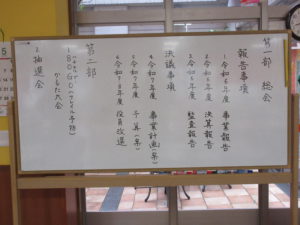 第一部 総会
報告事項
1 令和6年度 事業報告
2 令和6年度 決算報告
3 令和6年度 監査報告
決議事項
4 令和7年度 事業計画(案)
5 令和7年度 予算(案)
6 令和7・8年度 役員改選
第二部
1 80GO(フレイル予防)
かるた大会
2 抽選会
5